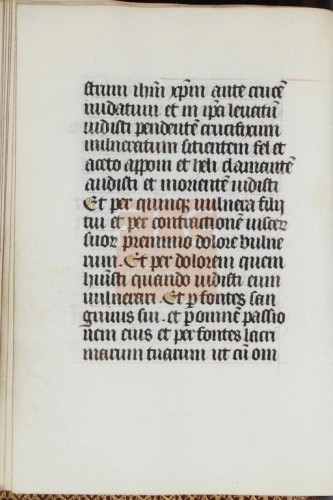 strum ihm̄ xp̄m ante crucē
nudatum et in ip̄a leuatū
uidisti pendentē crucifixum
uulneratum sitientem fel et
aceto apponi et heli clamantē
audisti et morientē uidisti
Et per quinqꝫ uulnera filij
tui et per contractionē uiscerꝝ
suoꝝ pre nimio dolore vulne
rum. Et per dolorem quem
huisti quando uidisti eum
uulnerari. Et ꝑ fontes san
guinis sui. et ꝑ omnē passio
nem eius et per fontes lacri
marum tuarum ut cū om